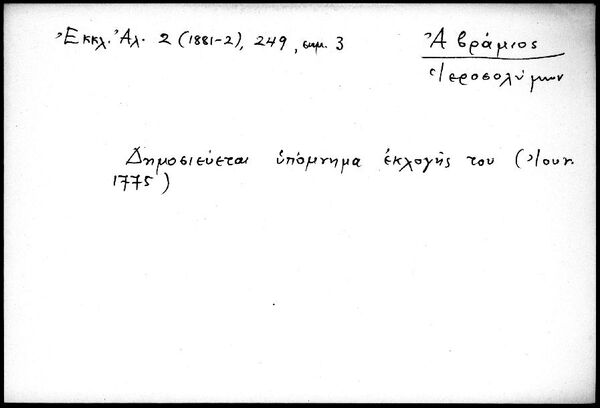 Ἐκκλ. Ἀλ. 2 (1881-2), 249, σημ. 3
Ἀβράμιος
Ἱεροσολύμων
Δημοσιεύεται ὑπόμνημα ἐκλογῆς του (Ἰουν.
1775)